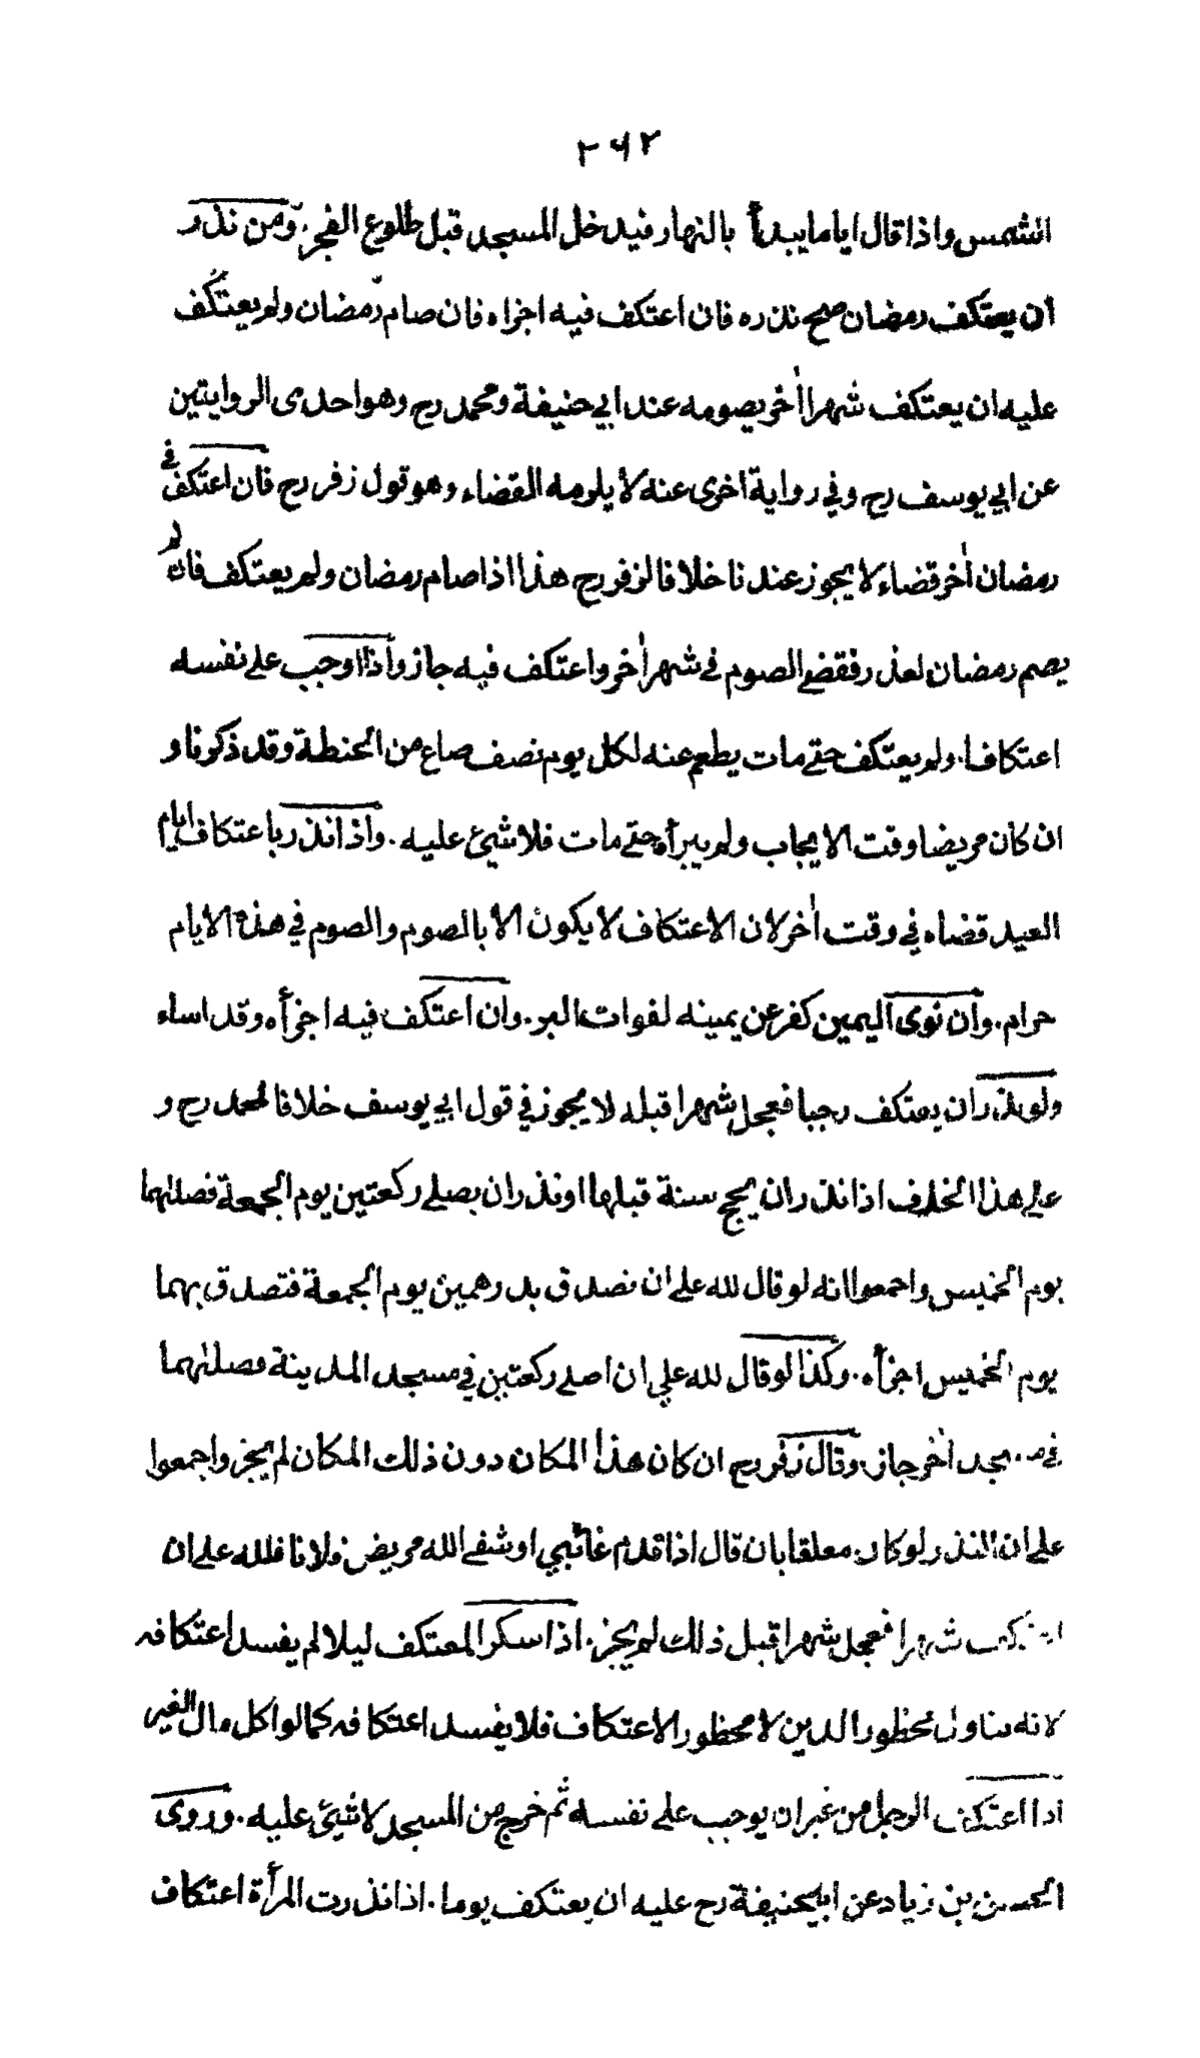 ٢٦٢
الشمس واذا قال اياما يبدأ بالنهار فيدخل المسجد قبل طلوع الفجر. ومن نذر
ان يعتكف رمضان صح نذره فان اعتكف فيه اجزاه فان صام رمضان ولم يعتكف
عليه ان يعتكف شهرا أخر يصومه عند ابي حنيفة ومحمد رح وهو احدى الروايتين
عن ابي يوسف رح وفي رواية اخرى عنه لا يلزمه القضاء وهو قول زفر رح فان اعتكف في
رمضان أخر قضاء لا يجوز عندنا خلافا لزفر رح هذا اذا صام رمضان ولم يعتكف فان لم
يصم رمضان لعذر فقضى الصوم في شهر أخر واعتكف فيه جاز واذا اوجب على نفسه
اعتكافا. ولم يعتكف حتى مات يطعم عنه لكل يوم نصف صاع من الحنطة وقد ذكرنا و
ان كان مريضا وقت الايجاب ولم يبرأ حتى مات فلا شيئ عليه. واذا نذر باعتكاف ايام
العيد قضاه في وقت أخر لان الاعتكاف لا يكون الا بالصوم والصوم في هذه الايام
حرام. وان نوى اليمين كفر عن يمينه لفوات البر. وان اعتكف فيه اجزأه وقد اساء
ولو نذر ان يعتكف رجبا فعجل شهرا قبله لا يجوز في قول ابي يوسف خلافا لمحمد رح و
على هذا الخلاف اذا نذر ان يحج سنة قبلها او نذر ان يصلي ركعتين يوم الجمعة فصلاهما
يوم الخميس واجمعوا انه لو قال لله على ان نصدق بدرهمين يوم الجمعة فتصدق بهما
يوم الخميس اجزأه. وكذا لو قال لله علي ان اصلي ركعتين في مسجد المدينة فصلاهما
في مسجد أخر جاز. وقال زفر رح ان كان هذا المكان دون ذلك المكان لم يجز واجمعوا
على ان النذر لو كان معلقا بان قال اذا قدم غائبي او شفى الله مريض فلانا فلله على ان
اعتكف شهرا فعجل شهرا قبل ذلك لم يجز. اذا سكر المعتكف ليلا لم يفسد اعتكافه
لانه تناول محظور الدين لا محظور الاعتكاف فلا يفسد اعتكافه كما لو اكل مال الغير
اذا اعتكف الرجل من غير ان يوجب على نفسه ثم خرج من المسجد لا شيئ عليه. وروى
الحسن بن زياد عن ابيحنيفة رح عليه ان يعتكف يوما. اذا نذرت المرأة اعتكاف